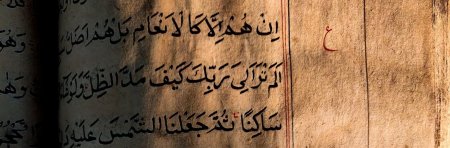 اِنْ هُمْ اِلَّا كَا لْاَنْعَامِ بَلْ هُمْ اَضَلُّ
ع
اَلَمْ تَرَ اِلٰى رَبِّكَ كَيْفَ مَدَّ الظِّلَّ وَلَوْ
سَاكِنًا ثُمَّ جَعَلْنَا الشَّمْسَ عَلَيْهِ